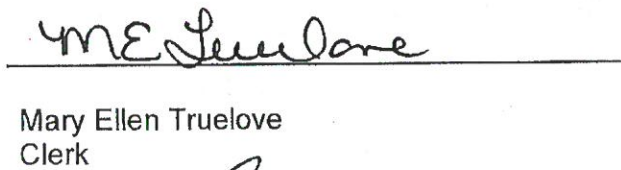 ME Truelove
Mary Ellen Truelove
Clerk